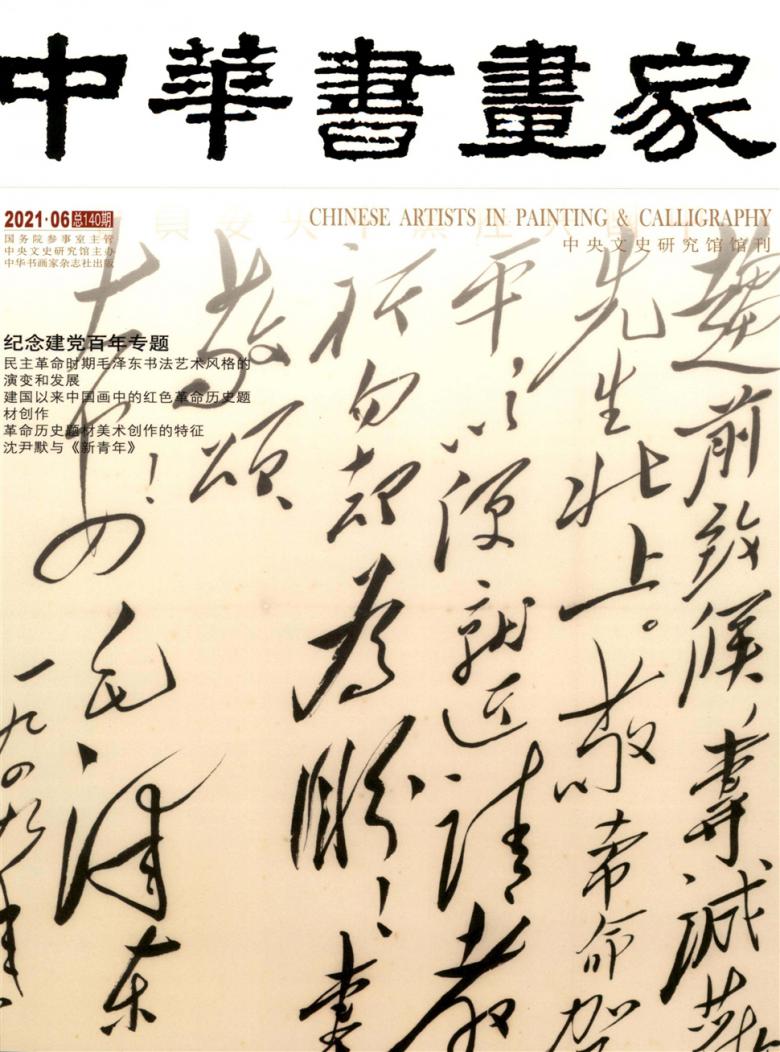 中華書畫家
2021·06 总140期
国务院参事室主管
中央文史研究馆主办
中华书画家杂志社出版
CHINESE ARTISTS IN PAINTING & CALLIGRAPHY
中央文史研究馆馆刊
纪念建党百年专题
民主革命时期毛泽东书法艺术风格的
演变和发展
建国以来中国画中的红色革命历史题
材创作
革命历史题材美术创作的特征
沈尹默与《新青年》
趨前致候，專誠
先生北上。敬希命駕
平，以便就近請教
祈勿却为盼！專
敬頌
大安！
毛澤东
一九四九年